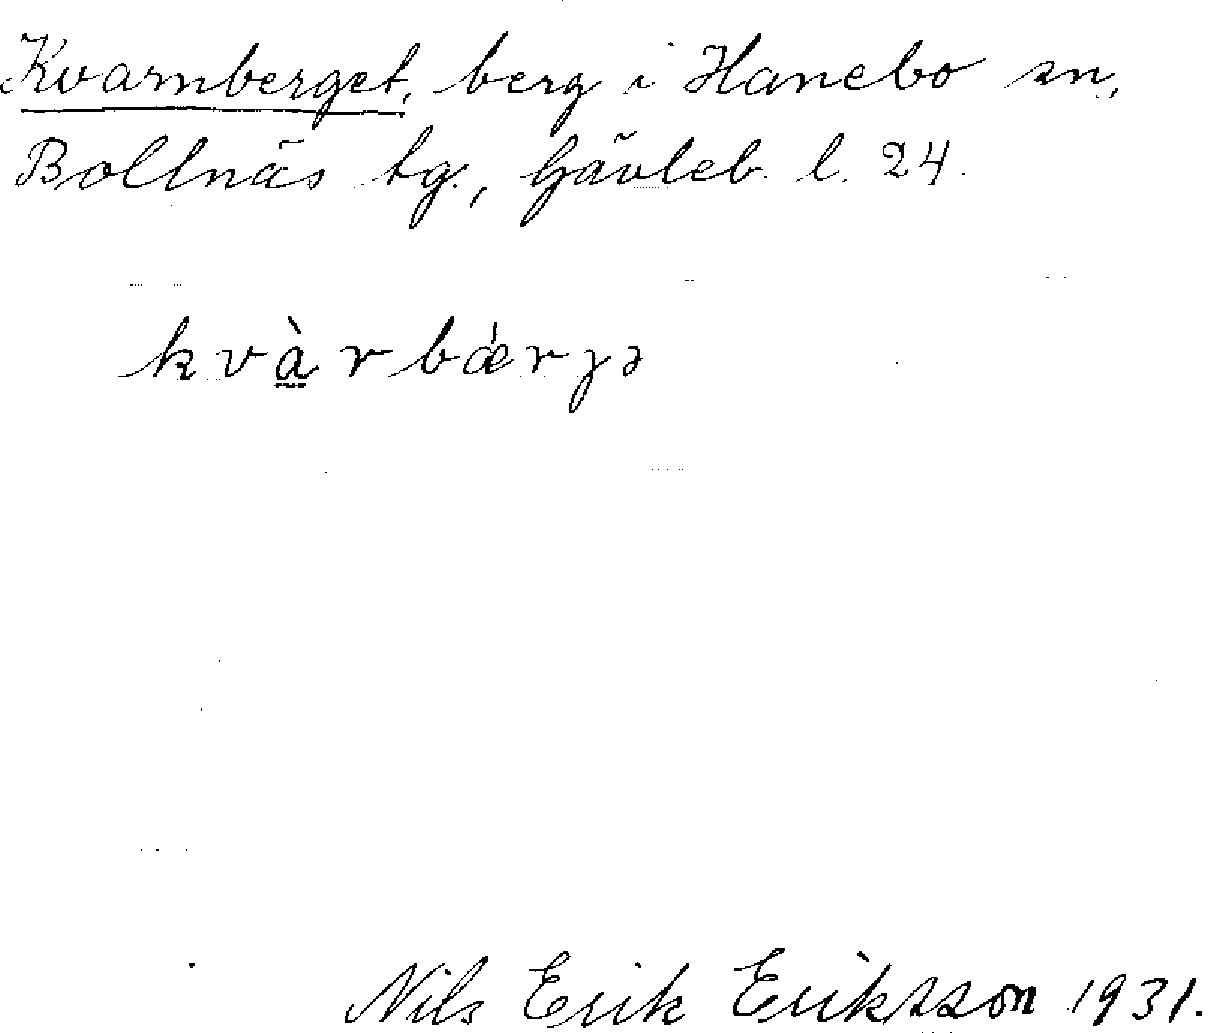 Kvarnberget, berg i Hanebo sn,
Bollnäs tg., Gävleb. l. 24.
kvàrbǽrɟə
Nils Erik Eriksson 1931.